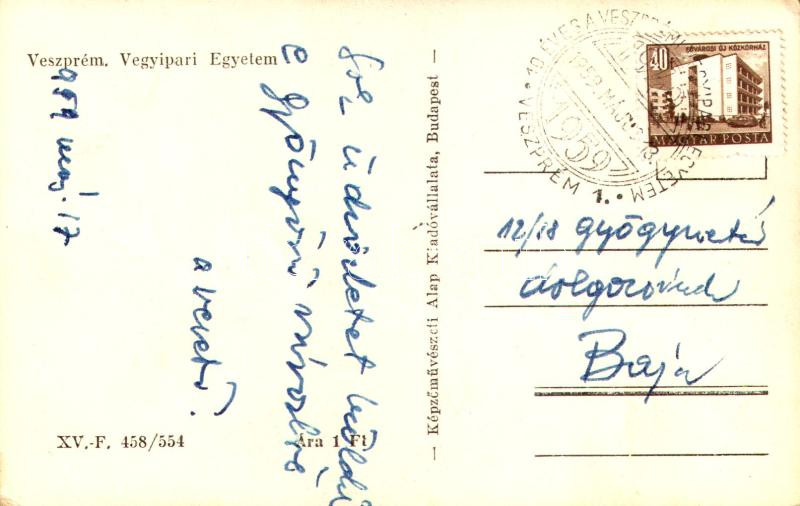 Veszprém. Vegyipari Egyetem
959 máj. 17
Sok üdvözletet küld
e gyönyörű városból
a vezető.
XV.-F. 458/554
Ára 1 Ft
— Képzőművészeti Alap Kiadóvállalata, Budapest —
• 10 ÉVES A VESZPRÉMI VEGYIPARI EGYETEM •
VESZPRÉM 1.
1959. MÁJUS
1959
FŐVÁROSI ÚJ KÖZKÓRHÁZ
40 f
MAGYAR POSTA
12/18
Baja